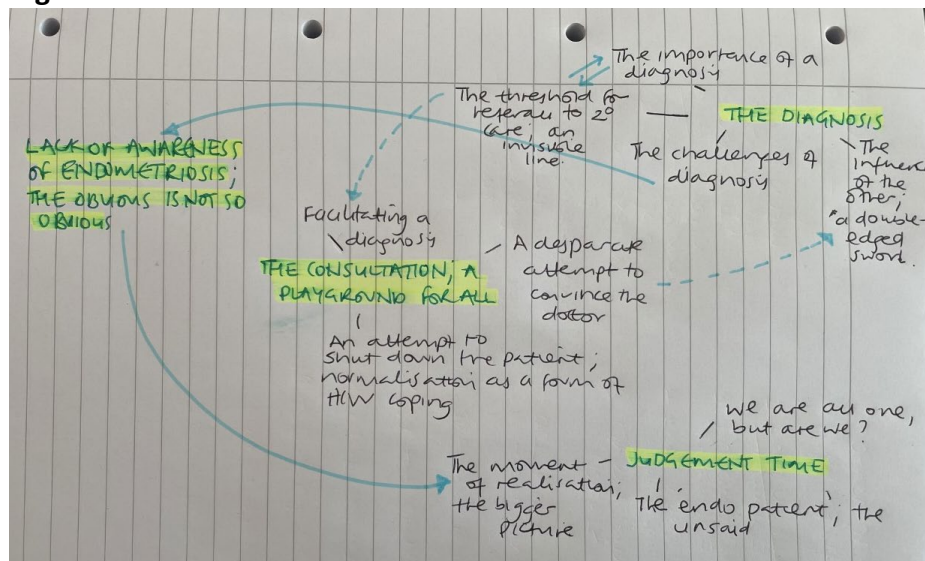 The importance of a
diagnosis
The threshold for
referall to 2°
care; an
invisible
line.
THE DIAGNOSIS
The challenges of
diagnosis
The
influence
of the
other;
"a double-
edged
sword.
LACK OF AWARENESS
OF ENDOMETRIOSIS;
THE OBVIOUS IS NOT SO
OBVIOUS
Facilitating a
diagnosis
THE CONSULTATION; A
PLAYGROUND FOR ALL
A desparate
attempt to
convince the
doctor
An attempt to
shut down the patient;
normalisation as a form of
HCW coping
we are all one,
but are we?
JUDGEMENT TIME
The moment
of realisation;
the bigger
picture
The endo patient; the
unsaid